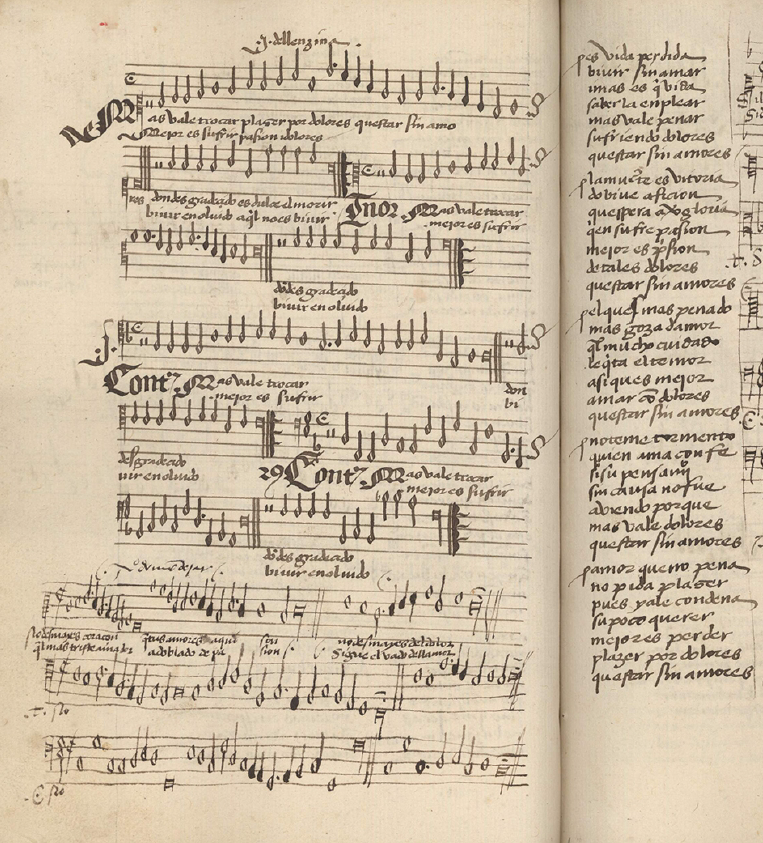 J. dellenzina
Mas vale trocar plazer por dolores questar sin amo
Mejor es sufrir pasion dolores
res dondes gradeçido es dulçe el morir
bivir en olvido aql no es bivir
Tenor Mas vale trocar
mejor es sufrir
dōdes gradeçido
bivir en olvido
Cont. Mas vale trocar
mejor es sufrir
don
bi
desgradeçido
vir en olvido
29 Cont. Mas vale trocar
mejor es sufrir
dōdes gradeçido
bivir en olvido
no desmayes coraçon
no desmayes del dolor
sigue el
pes vida perdida
bivir sin amar
i mas es q̄ vida
saberla enplear
mas vale penar
sufriendo dolores
questar sin amores
la muerte es vitoria
do bive afiçion
quespera gloria
q̄en sufre pasion
mejor es psion
de tales dolores
questar sin amores
el ques mas penado
mas goza damor
ql mucho cuidado
le q̄ta el temor
asi ques mejor
amar cō dolores
questar sin amores
no teme tormento
quien ama con fe
si su pensamīo
sin causa no fue
aviendo porque
mas vale dolores
questar sin amores
amor que no pena
no pida plazer
pues ya le condena
su poco querer
mejor es perder
plazer por dolores
questar sin amores